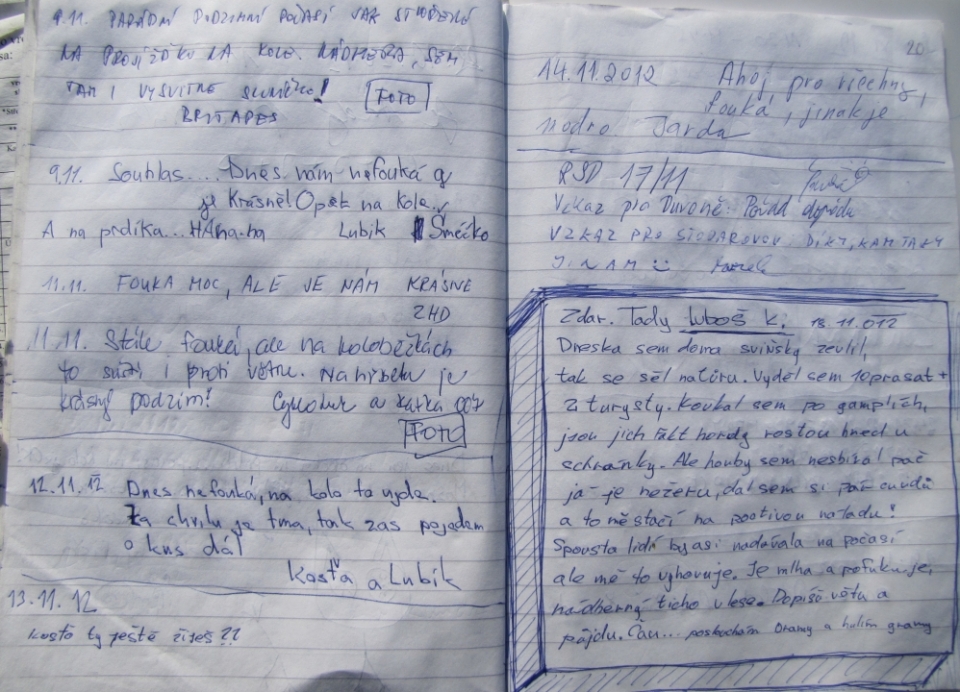 9.11. PARÁDNÍ PODZIMNÍ POČASÍ JAK STVOŘENÉ
NA PROJÍŽĎKU NA KOLE. NÁDHERA, SEM
TAM I VYSVITNE SLUNÍČKO! FOTO
9.11. Souhlas... Dnes nám nefouká a
je Krásně! Opět na kole.
A na prdíka... HAha-ha Lubík Šméčko
11.11. FOUKA MOC, ALE JE NÁM KRÁSNE
ZHD
11.11. Stále fouká, ale na koloběžkách
to sviští i proti větru. Nahýbelu je
krásný podzim! a Katka 007
FOTO
12.11.12 Dnes nefouká, na kolo to vyde.
Za chvilu je tma, tak zas pojedem
o kus dál
Kosťa a Lubík
13.11.12
Kosťo ty ještě žiješ??
20
14.11.2012 Ahoj pro všechny,
fouká, jinak je
modro Jarda
17/11
Vzkaz pro : Pořád
VZKAZ PRO : DÍKY, KAMTASY
Zdar. Tady Luboš K. 18.11.012
Dneska sem doma sviňsky zevlil,
tak se šel na túru. Vyděl sem 10 prasat +
2 turysty. Koukal sem po
jsou jich fakt hordy rostou hned u
schránky. Ale houby sem nesbíral pač
já je nežeru, dal sem si pár čuudů
a to mě stačí na poctivou náladu!
Spousta lidí by asi nadávala na počasí
ale mě to vyhovuje. Je mlha a pofukuje,
nádherný ticho v lese. Dopíšu větu a
půjdu. Čau... poslouchám a hulím gramy